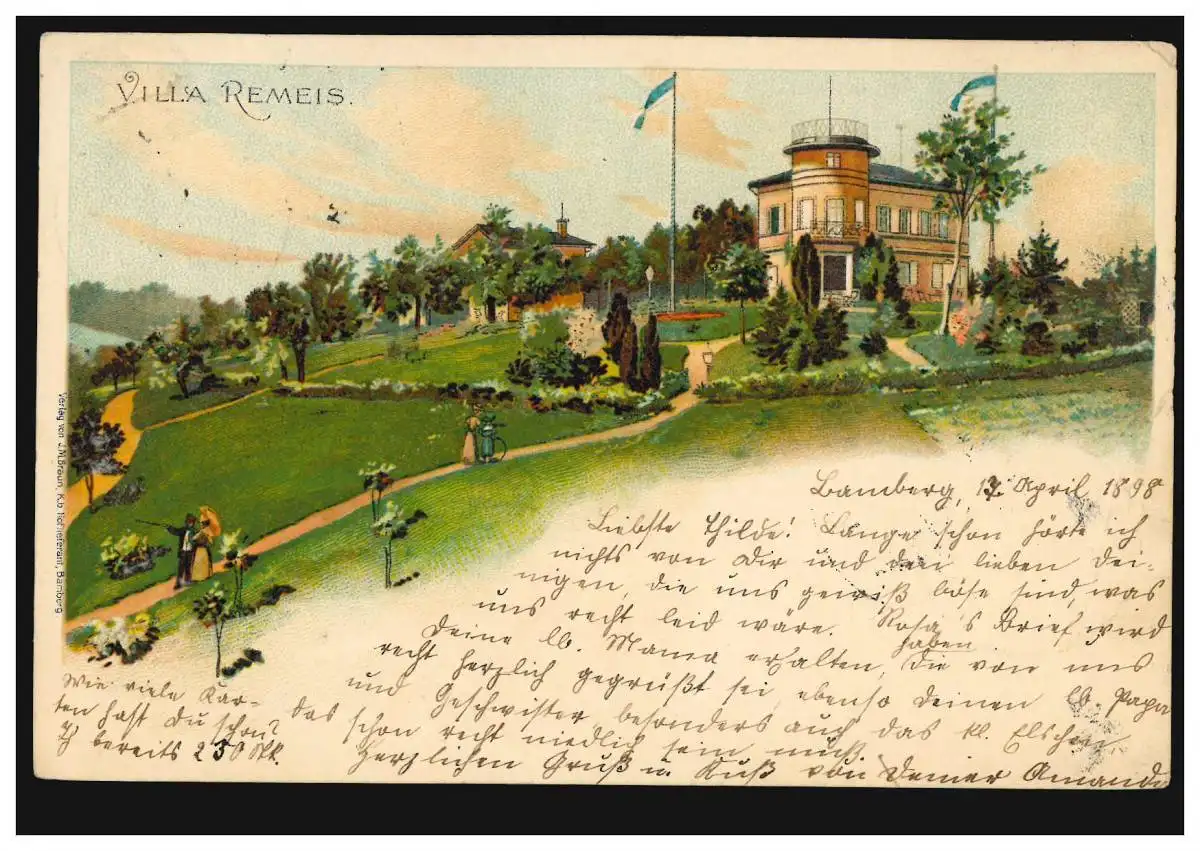 VILLA REMEIS.
Verlag von J.M.Braun, K.b. Hoflieferant, Bamberg
Bamberg, 12. April 1898
Liebste Thilde! Lange schon hörte ich
nichts von Dir und den lieben Dei-
nigen, die uns gewiß böse sind, was
uns recht leid wäre. Rosa's Brief wird
Deine lb. Mama erhalten haben, die von uns
recht herzlich gegrüßt sei, ebenso Deinen lb. Papa
und Geschwister, besonders auch das kl. Elschen,
das schon recht niedlich sein muß.
Herzlichen Gruß u. Kuß von Deiner Amanda
Wie viele Kar-
ten hast Du schon?
Ich bereits 230 Stk.